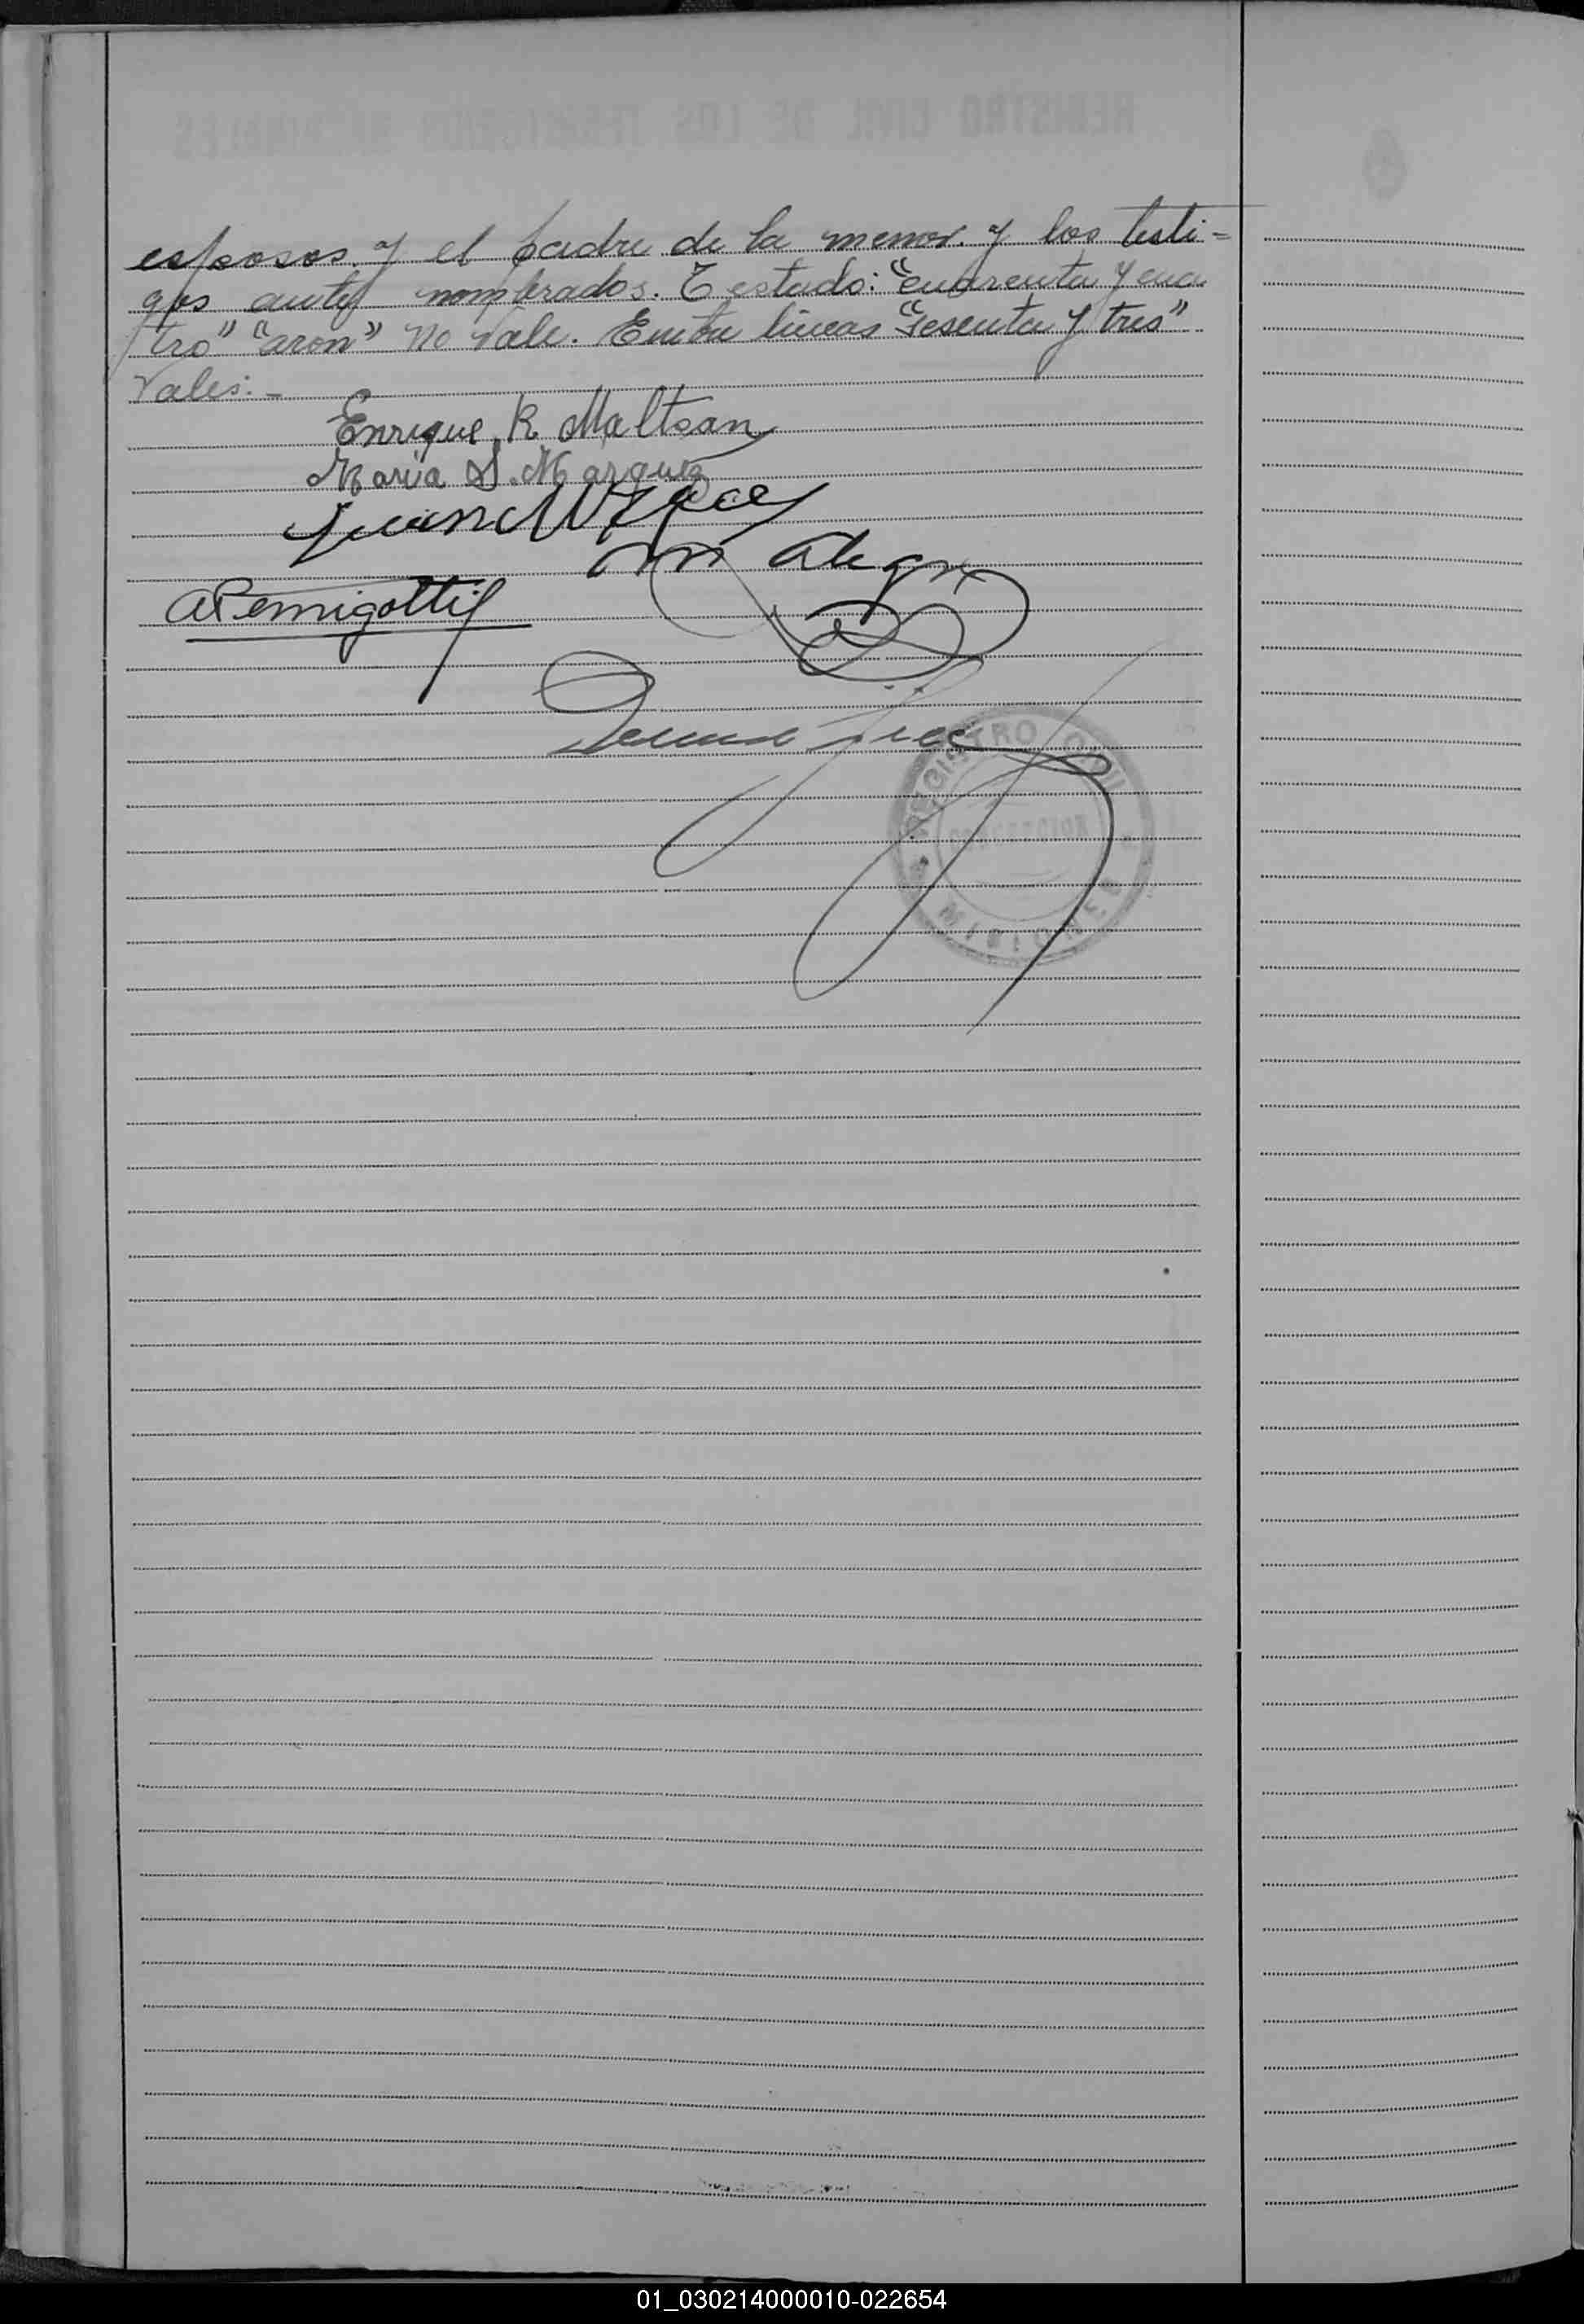 esposos. y el padre de la menor. y los testi-
gos antes nombrados. Testado: "cuarenta y cua
tro" "aron" no vale. Entre lineas "sesenta y tres"
Vale:-
Enrique R. Maltzan
Maria S. Marquez
Alegre
REGISTRO CIVIL
MISIONES
01_030214000010-022654